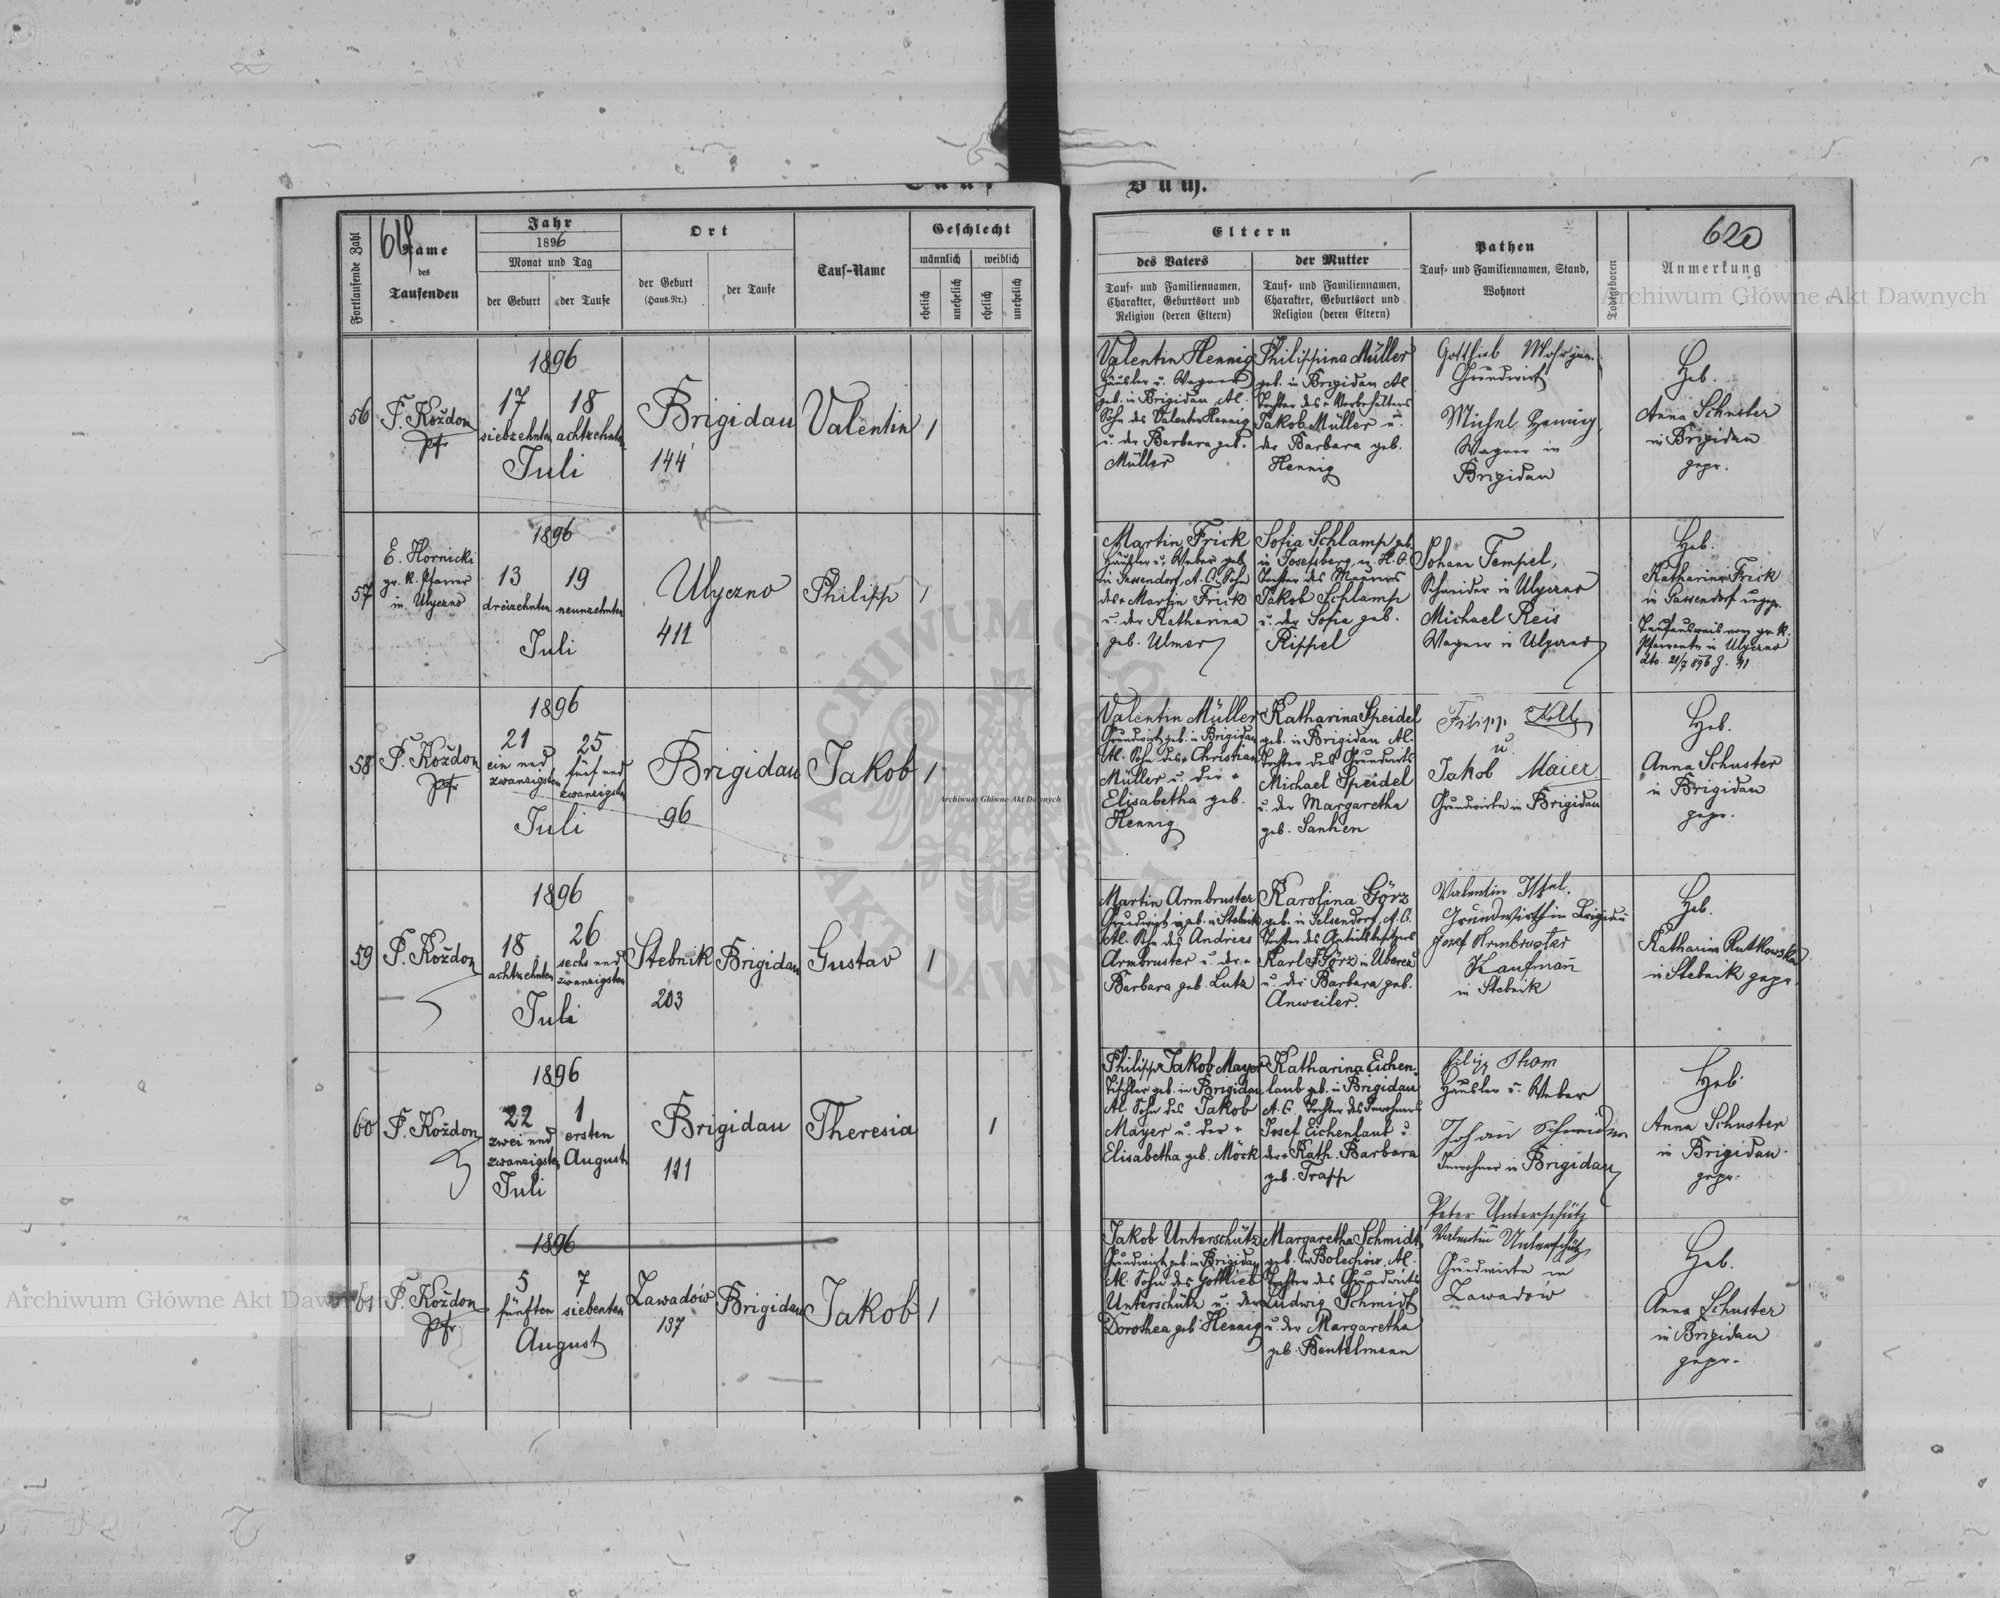 Tauf Buch.
619
620
Fortlaufende Zahl
Name
des
Taufenden
Jahr
1896
Monat und Tag
der Geburt
der Taufe
Ort
der Geburt
(Haus-Nr.)
der Taufe
Tauf-Name
Geschlecht
männlich
weiblich
ehelich
unehelich
ehelich
unehelich
Eltern
des Vaters
Tauf- und Familiennamen,
Charakter, Geburtsort und
Religion (deren Eltern)
der Mutter
Tauf- und Familiennamen,
Charakter, Geburtsort und
Religion (deren Eltern)
Pathen
Tauf- und Familiennamen, Stand,
Wohnort
Todtgeboren
Anmerkung
56
F. Koždon
Pfr
1896
17
siebzehnten
18
achtzehnten
Juli
Brigidau
144
Valentin
1
Valentin Hennig
Häusler u. Wagner
geb. in Brigidau, Al.
Sohn des Valentin Hennig
u. der Barbara geb.
Müller
Philippina Müller
geb. in Brigidau Al.
Tochter des Vorbehalters
Jakob Müller u.
der Barbara geb.
Hennig
Gottlieb Mohr jun.
Grundwirt
Michel Hennig,
Wagner in
Brigidau
Heb.
Anna Schuster
in Brigidau
gepr.
57
E. Hornicki
gr. k. Pfarrer
in Ulyczno
1896
13
dreizehnten
19
neunzehnten
Juli
Ulyczno
411
Philipp
1
Martin Frick
Häusler u. Weber geb.
in Gassendorf, A. C. Sohn
des + Martin Frick
u. der Katharina
geb. Ulmer
Sofia Schlamp geb.
in Josefsberg, ev. H. C.
Tochter des Maurers
Jakob Schlamp
u. der Sofia geb.
Rippel
Johann Tempel,
Schneider in Ulyczno
Michael Reis
Wagner in Ulyczno
Heb.
Katharina Frick
in Gassendorf ungepr.
Taufausweis vom gr. k.
Pfarramte in Ulyczno
dto. 21/7 896 Z. 41
58
F. Koždon
Pfr
1896
21
ein und
zwanzigsten
25
fünf und
zwanzigsten
Juli
Brigidau
96
Jakob
1
Valentin Müller
Grundwirt geb. in Brigidau
Al. Sohn des + Christian
Müller u. der +
Elisabetha geb.
Hennig
Katharina Speidel
geb. in Brigidau Al.
Tochter des Grundwirts
Michael Speidel
u. der Margaretha
geb. Sanken
Filipp Koll
u.
Jakob Maier
Grundwirte in Brigidau
Heb.
Anna Schuster
in Brigidau
gepr.
59
F. Koždon
1896
18
achtzehnten
26
sechs und
zwanzigsten
Juli
Stebnik
203
Brigidau
Gustav
1
Martin Armbruster
Grundwirt geb. in Stebnik
Al. Sohn des Andreas
Armbruster u. der +
Barbara geb. Lutz
Karolina Görz
geb. in Gelsendorf, A. C.
Tochter des
Karl Görz in
u. der Barbara geb.
Anweiler.
Valentin Ittel,
Grundwirth in Brigidau
Jozef Armbruster
Kaufmann
in Stebnik
Heb.
Katharina Rutkowska
in Stebnik gepr.
60
F. Koždon
1896
22
zwei und
zwanzigsten
Juli
1
ersten
August
Brigidau
111
Theresia
1
Philipp Jakob Mayer
Tischler geb. in Brigidau
Al. Sohn des Jakob
Mayer u. der +
Elisabetha geb. Möck
Katharina Eichen-
laub geb. in Brigidau
A. C. Tochter des Inwohners
Josef Eichenlaub u.
der + Kath. Barbara
geb. Trapp
Filipp Thom
Häusler u. Weber
Johann Schneider
Inwohner in Brigidau
Heb.
Anna Schuster
in Brigidau
gepr.
61
F. Koždon
Pfr
1896
5
fünften
7
siebenten
August
Zawadów
137
Brigidau
Jakob
1
Jakob Unterschütz
Grundwirt geb. in Brigidau
Al. Sohn des Gottlieb
Unterschütz u. der
Dorothea geb. Hennig
Margaretha Schmidt
geb. in Bolechow, Al.
Tochter des Grundwirts
Ludwig Schmidt
u. der Margaretha
geb. Bentelmann
Peter Unterschütz
Valentin Unterschütz
Grundwirte in
Zawadów
Heb.
Anna Schuster
in Brigidau
gepr.
Archiwum Główne Akt Dawnych
Archiwum Główne Akt Dawnych
Archiwum Główne Akt Dawnych
ARCHIWUM GŁÓWNE AKT DAWNYCH